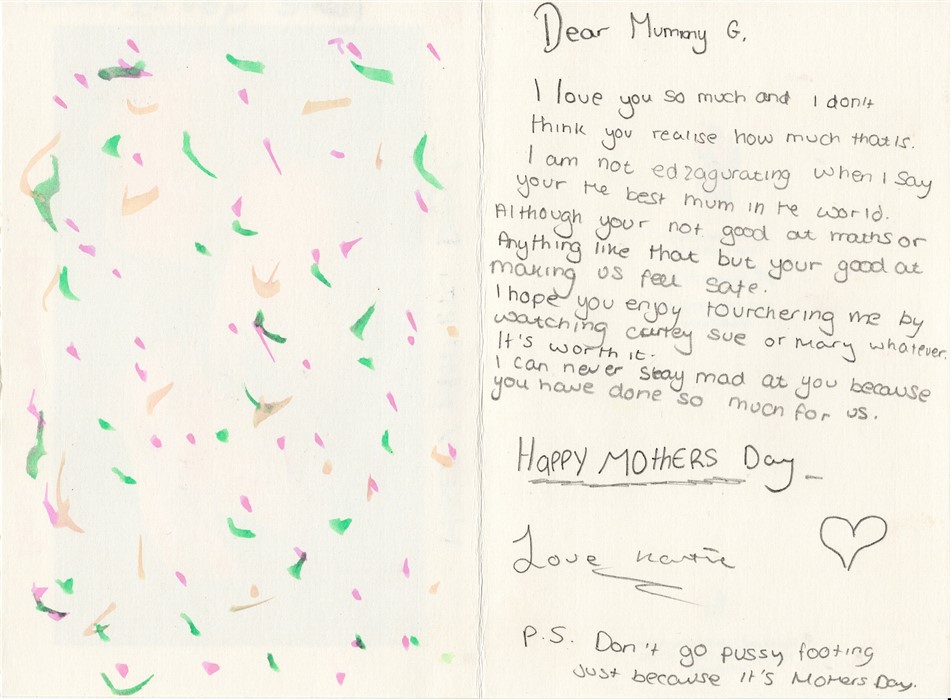 Dear Mummy G,
I love you so much and I don't
think you realise how much that is.
I am not edzagurating when I say
your the best mum in the world.
Although your not good at maths or
Anything like that but your good at
making us feel safe.
I hope you enjoy tourchering me by
watching curley Sue or Mary whatever.
It's worth it.
I can never stay mad at you because
you have done so much for us.
Happy MOTHERS Day
Love Katie
P.S. Don't go pussy footing
just because it's Mothers Day.